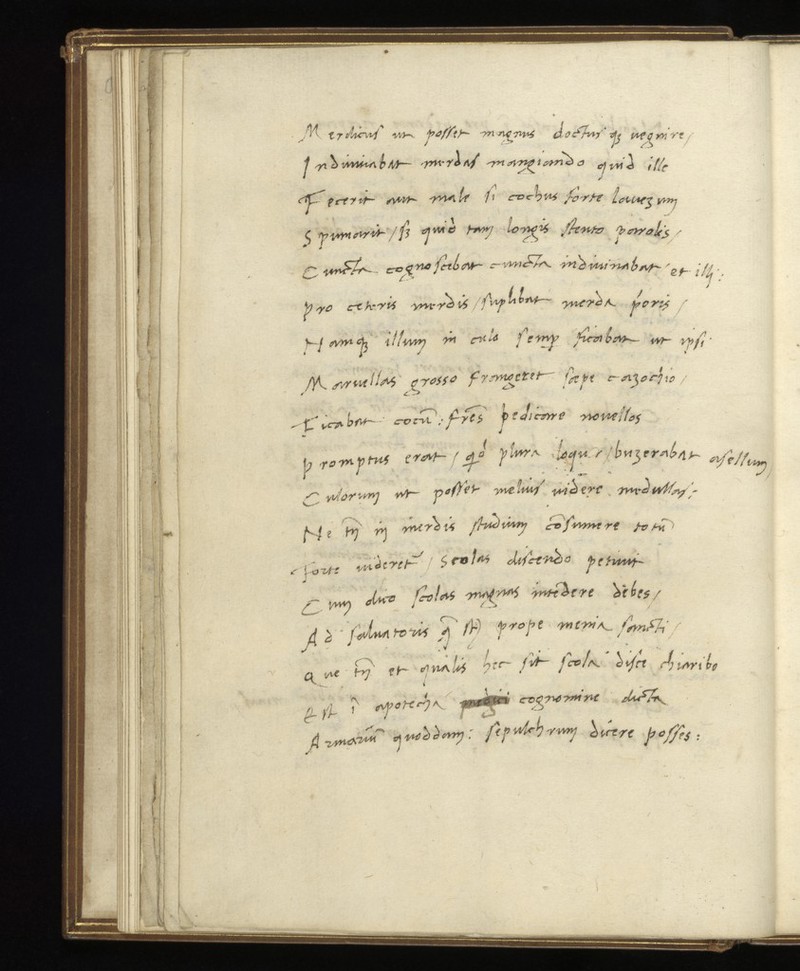 Merdicus ut posset magnus doctusq; uegnire/
Indiuinabat merdas mangiando quid ille
Fecerit aut male si cochus forte lauezum
Spumarit/ sȝ quid tam longis stento parolis/
Cuncta cognoscebat cuncta indiuinabat et illi:
Pro ceteris merdis/ suplibat merda
Namq; illum in culo semp ficabat ut ipsi
Maruellas grosso frangeret sæpe cazochio/
Ficabat cocū: frēs pedicare nouellos
Promptus erat/ plura loqu / buzerabat asellum/
Culorum ut posset melius uidere medullas:
Ne tn̄ in merdis studium cōsumere totū
Forte uideret/ scolas discendo petiuit
Cum dico scolas magnas intēdere debes/
Ad saluatoris q̄ st̄ prope menia sancti/
Que tn̄ et qualis hec sit scola disce chiaribo
Est ī apotecha cognomine dicta
Armariū quoddam: sepulchrum dicere posses: